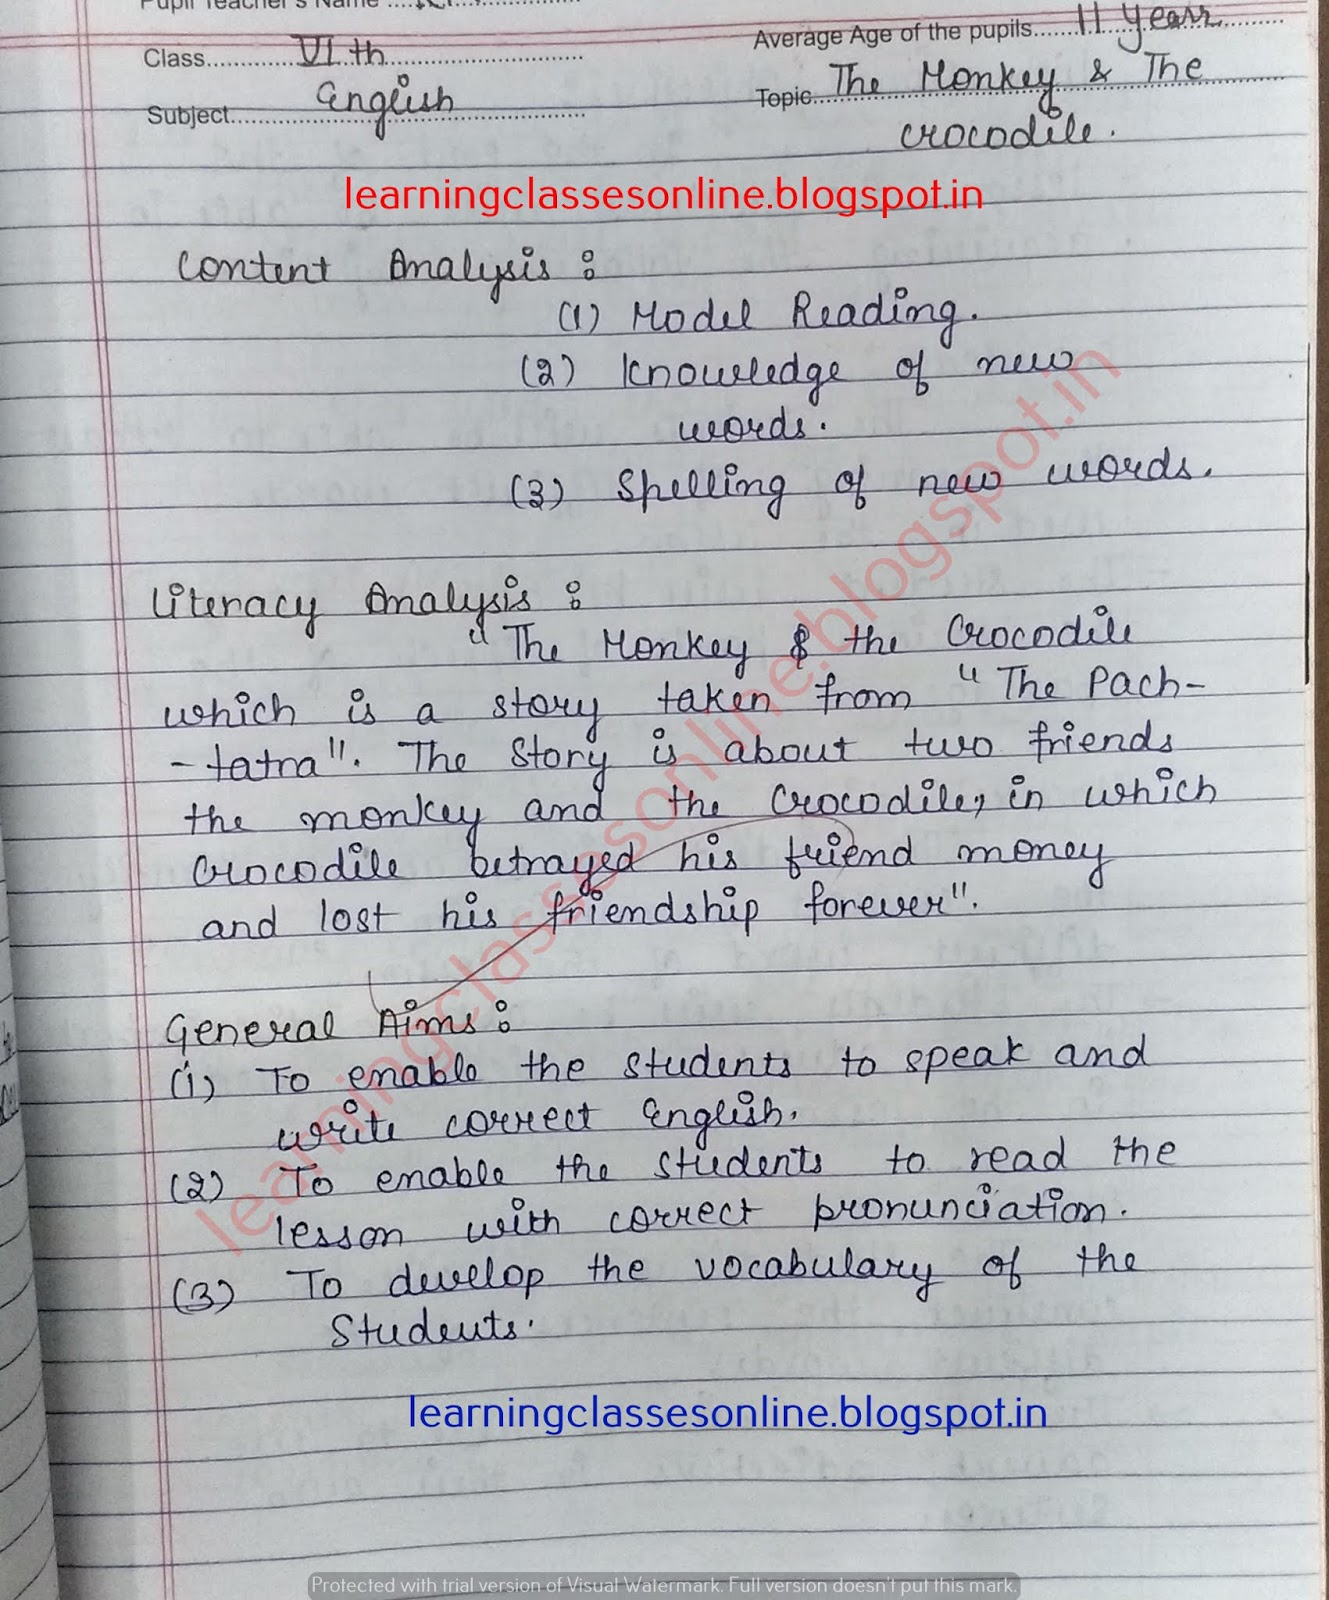 Pupil Teacher's Name
Class VIth
Average Age of the pupils 11 Years
Subject English
Topic The Monkey & The
Crocodile.
learningclassesonline.blogspot.in
Content Analysis :
(1) Model Reading.
(2) Knowledge of new
words.
(3) Spelling of new words.
Literacy Analysis :
" The Monkey & the Crocodile
which is a story taken from " The Pach-
-tatra". The Story is about two friends
the monkey and the Crocodile, in which
Crocodile betrayed his friend money
and lost his friendship forever".
General Aims :
(1) To enable the students to speak and
write correct English.
(2) To enable the students to read the
lesson with correct pronunciation.
(3) To develop the vocabulary of the
Students.
learningclassesonline.blogspot.in
learningclassesonline.blogspot.in
Protected with trial version of Visual Watermark. Full version doesn't put this mark.